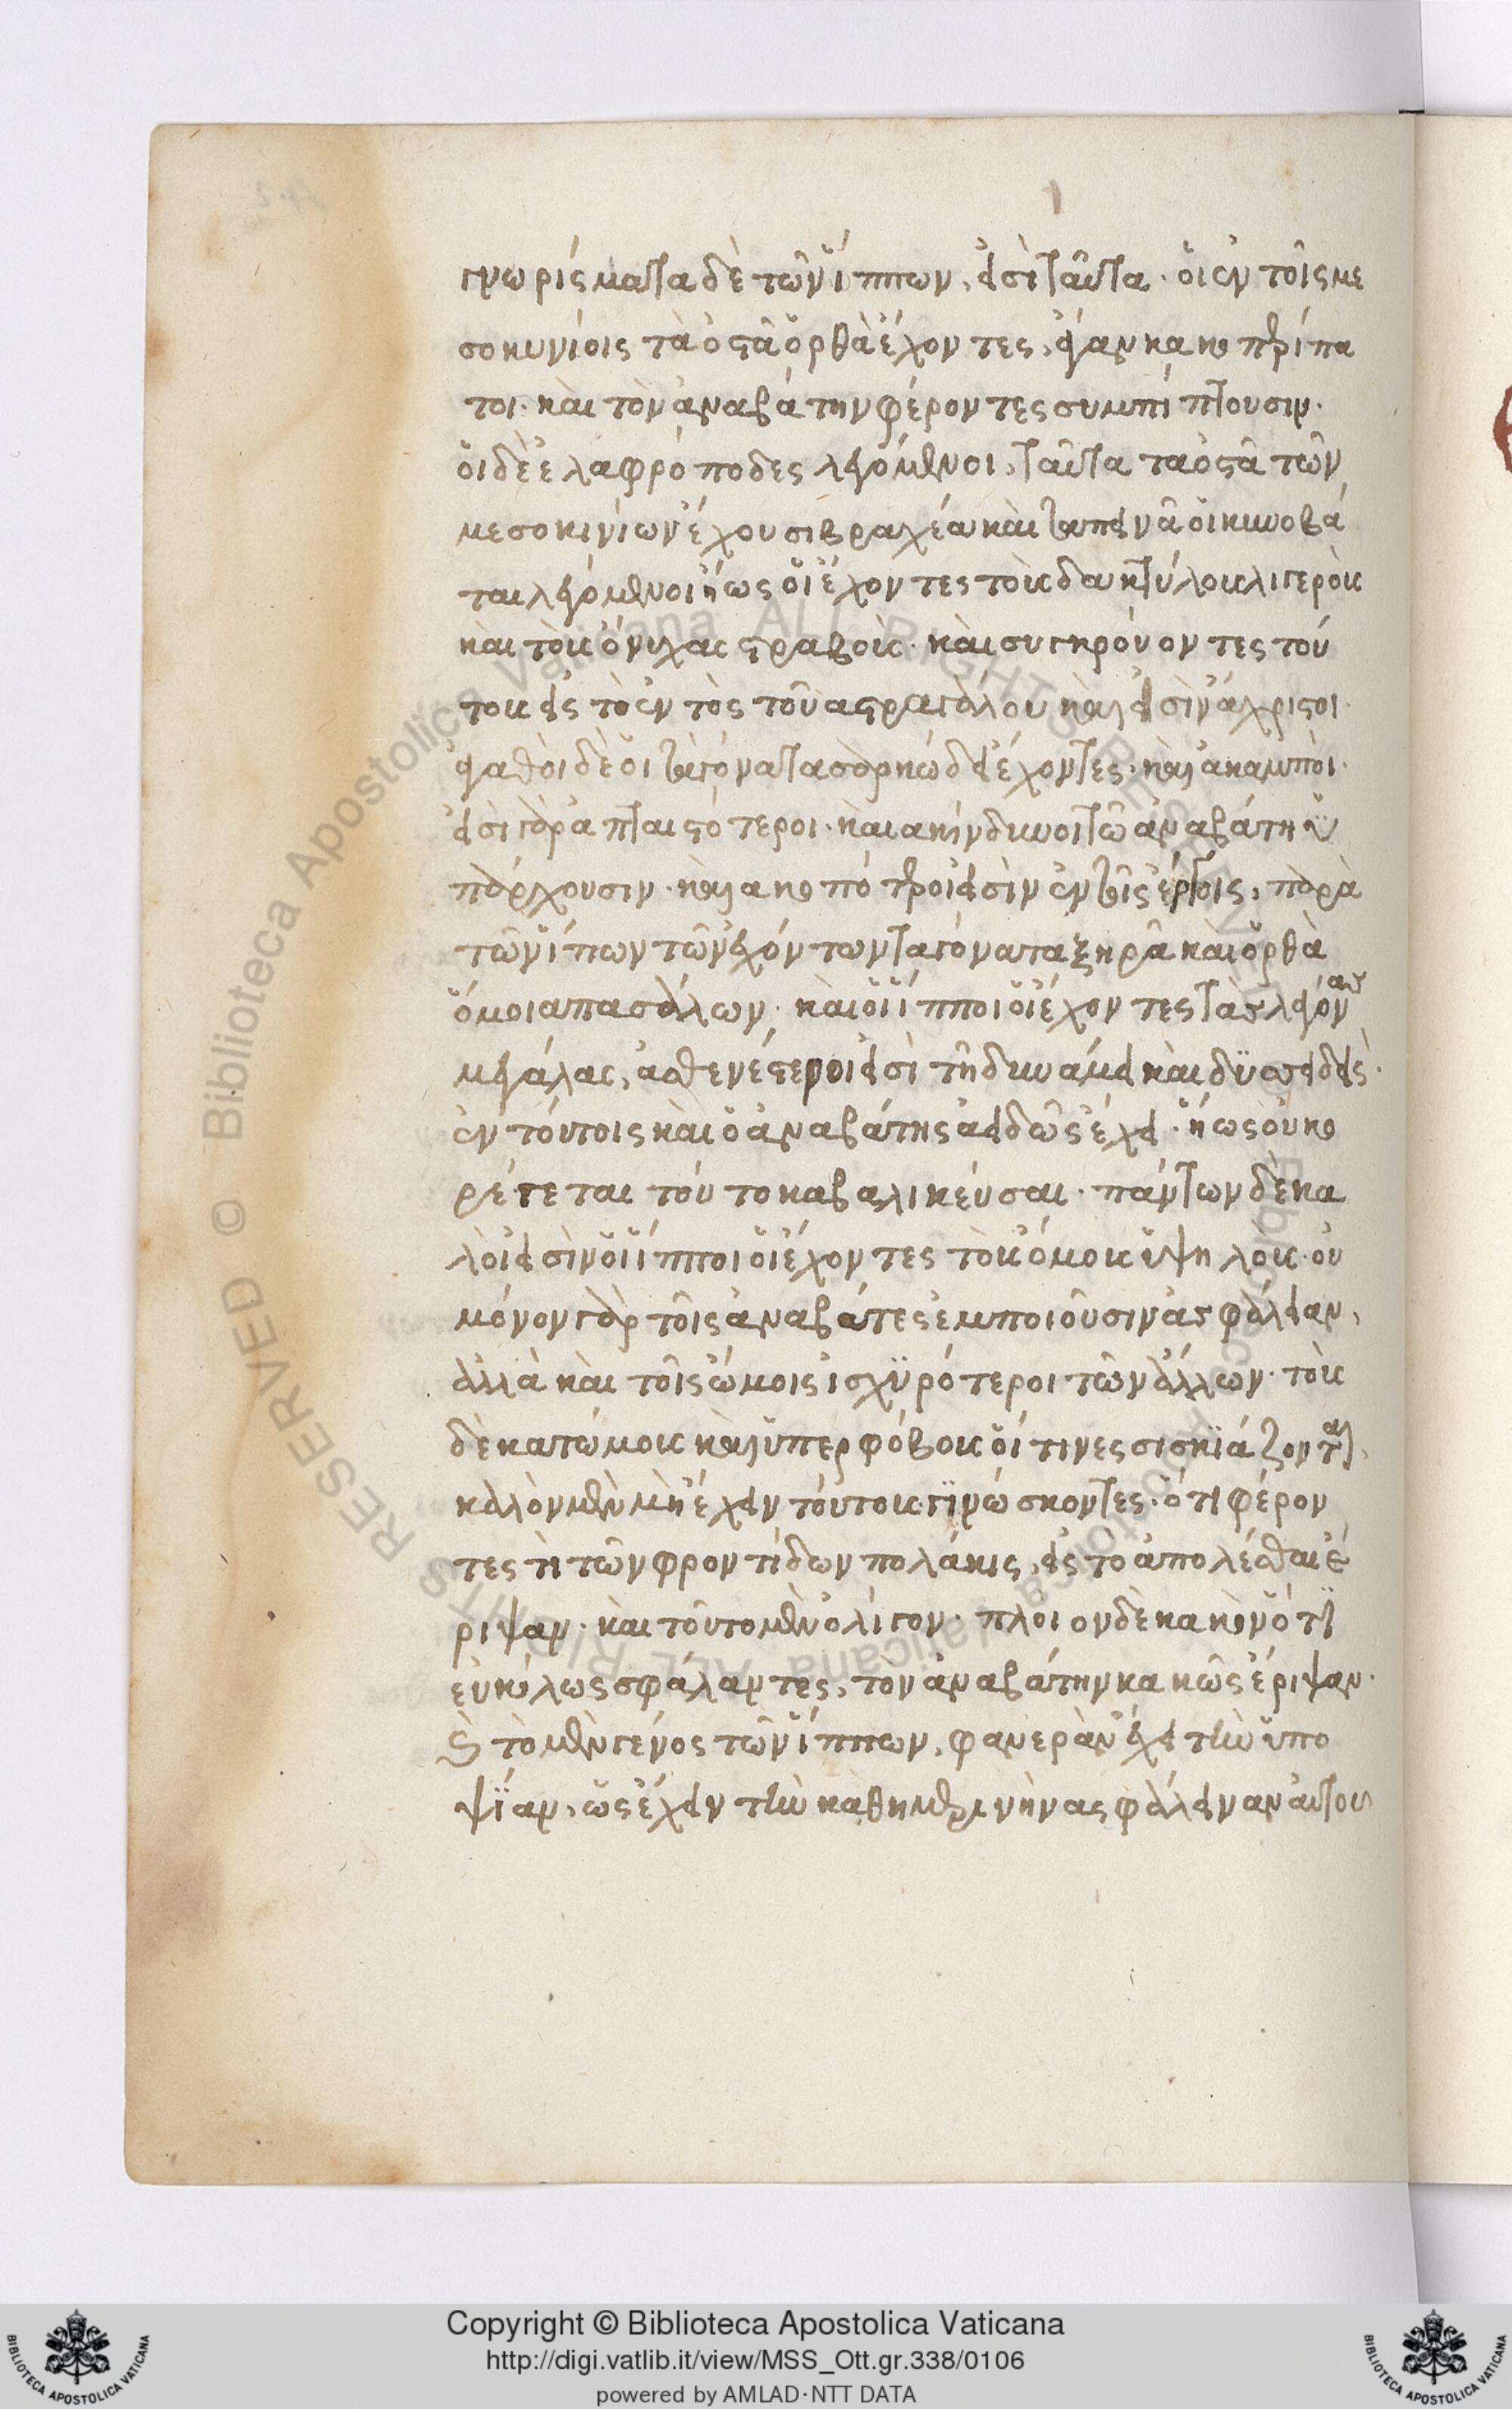 γνωρίσματα δὲ τῶν ἵππων, εἰσὶ ταῦτα· ὅι ἐν τοῖς με
σοκυνίοις τὰ ὀστᾶ ὄρθὰ ἔχοντες, ἄγαν κακοπερίπα
τοι· καὶ τὸν ἀναβάτην φέροντες συμπίπτουσιν·
ὅι δὲ ἐλαφρόποδες λεγόμενοι, ταῦτα τα ὀστᾶ τῶν
μεσοκινίων ἔχουσι βραχέα καὶ ταπεινᾶ ὅι κυνοβά
ται λεγόμενοι ἤως ὅι ἔχοντες τοὺς δακτύλους λιγεροὺς
καὶ τοὺς ὄνυχας στραβοὺς· καὶ συγκρόυοντες τού
τους εἰς τὸ ἐντὸς τοῦ αστραγάλου καὶ εἰσὶν ἄχριστοι·
ἀγαθοὶ δὲ ὅι τὰ γόνατα σαρκώδει ἔχοντες· καὶ ἀκαμποὶ·
εἰσὶ γὰρ ἀπταιστότεροι· καὶ ακίνδυνοι τῶ ἀναβάτη ὑ
πάρχουσιν· καὶ ακοπότεροι εἰσὶν ἐν τοῖς ἔργοις, παρὰ
τῶν ἵπων τῶν ἐχόντων τα γόνατα ξηρᾶ καὶ ὄρθὰ
ὅμοια πασάλων· καὶ ὅι ἵπποι ὅι ἔχοντες τὰς λαγόνας
μεγάλας, ἀσθενέστεροι εἰσὶ τῆ δυνάμει καὶ δϋσειδεὶς·
ἐν τόυτοις καὶ ὅ ἀναβάτης ἀειδῶς ἔχει· ἤως ὀυκο
ρέγεται τόυτο καβαλικέυσαι· πάντων δὲ κα
λὸι εἰσὶν ὅι ἵπποι ὅι ἔχοντες τοὺς ὄμους ὕψηλους· ὀυ
μόνον γὰρ τοῖς ἀναβάτες ἐμποιοῦσιν ἀσφάλειαν,
ἀλλὰ καὶ τοῖς ὤμοις ἰσχϋρότεροι τῶν ἄλλων· τοὺς
δὲ κατώμους καὶ ὕπερφόβους ὅι τινες σισκϊάζονται,
καλὸν μὲν μὴ ἔχειν τόυτους γϊνώσκοντες· ὅτι φέρον
τες τὶ τῶν φροντίδων πολάκις, εἰς τὸ ἀπολέσθαι ἔ
ριψαν· καὶ τοῦτο μὲν ὀλίγον· πλοιον δὲ κακὸν ὅτϊ
εὐκόλως σφάλαντες, τὸν ἀναβάτην κακῶς ἔριψαν·
καὶ τὸ μὲν γένος τῶν ἵππων, φανερὰν ἔχει τὴν ὕπο
ψΐαν, ὥς ἔχειν τὴν καθημερινὴν ασφάλειαν ἀυτοῦ
Copyright © Biblioteca Apostolica Vaticana
http://digi.vatlib.it/view/MSS_Ott.gr.338/0106
powered by AMLAD·NTT DATA